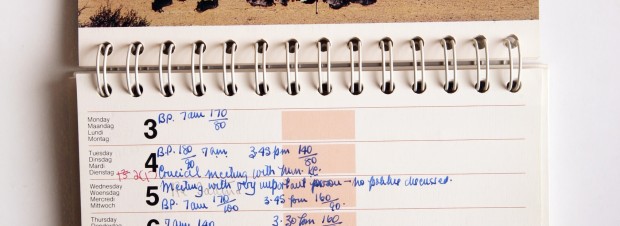 Monday
Maandag
Lundi
Montag
3 BP. 7am 170/80
Tuesday
Dinsdag
Mardi
Dienstag
4 B.P. 180/90 7am 3.45 pm 140/80
Crucial meeting with
Wednesday
Woensdag
Mercredi
Mittwoch
5 Meeting with very important person - no politics discussed.
BP. 7am 170/100 3.45 pm 160/90.
Thursday
6 7am 140 3.30 pm 160